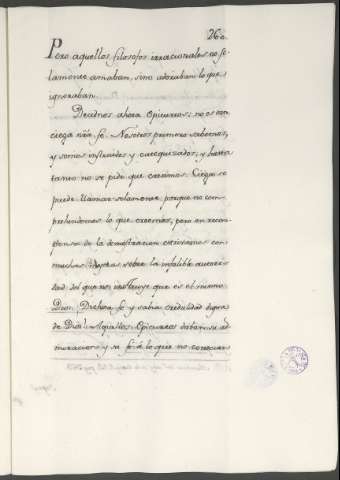 260.
Pero aquellos filosofos irracionales no so-
lamente amaban, sino adoraban lo que
ignoraban.
Decidnos ahora Epicureos: no es tan
ciega nra fe. Nosotros primero sabemos,
y somos instruidos y catequizados, y hasta
tanto no se pide que creamos. Ciega se
puede llamar solamente porque no com-
prehendemos lo que creemos, pero en recom-
pensa de la demostracion estrivamos con
muchas sobre la infalible autori-
dad del que nos instruye que es el mismo
Dios. Dichosa fe y sabia credulidad digna
de Dios! Aquellos Epicureos daban su ad-
miracion y su fe a lo que no conocian